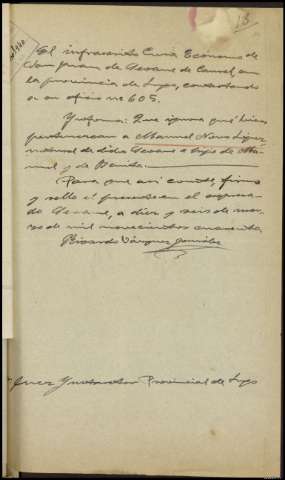 13
El infrascrito Cura Ecónomo de
San Juan de Seoane de Caurel, en
la provincia de Lugo, contestando
a su oficio nº 605.
Informa: Que ignora qué bienes
pertenezcan a Manuel Novo López
natural de dicho Seoane e hijo de Ma-
nuel y de Benita.
Para que así conste firmo
y sello el presente en el expresa-
do Seoane, a diez y seis de mar-
zo de mil novecientos cuarenta.
Ricardo Vázquez González
Juez Instructor Provincial de Lugo